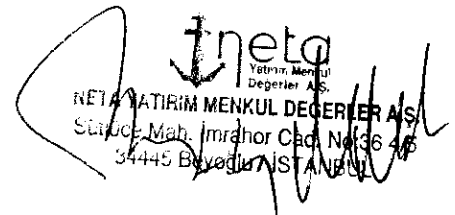 neta
Yatırım Menkul
Değerler A.Ş.
NETA YATIRIM MENKUL DEĞERLER A.Ş.
Sütlüce Mah. İmrahor Cad. No:36 4/6
34445 Beyoğlu / İSTANBUL